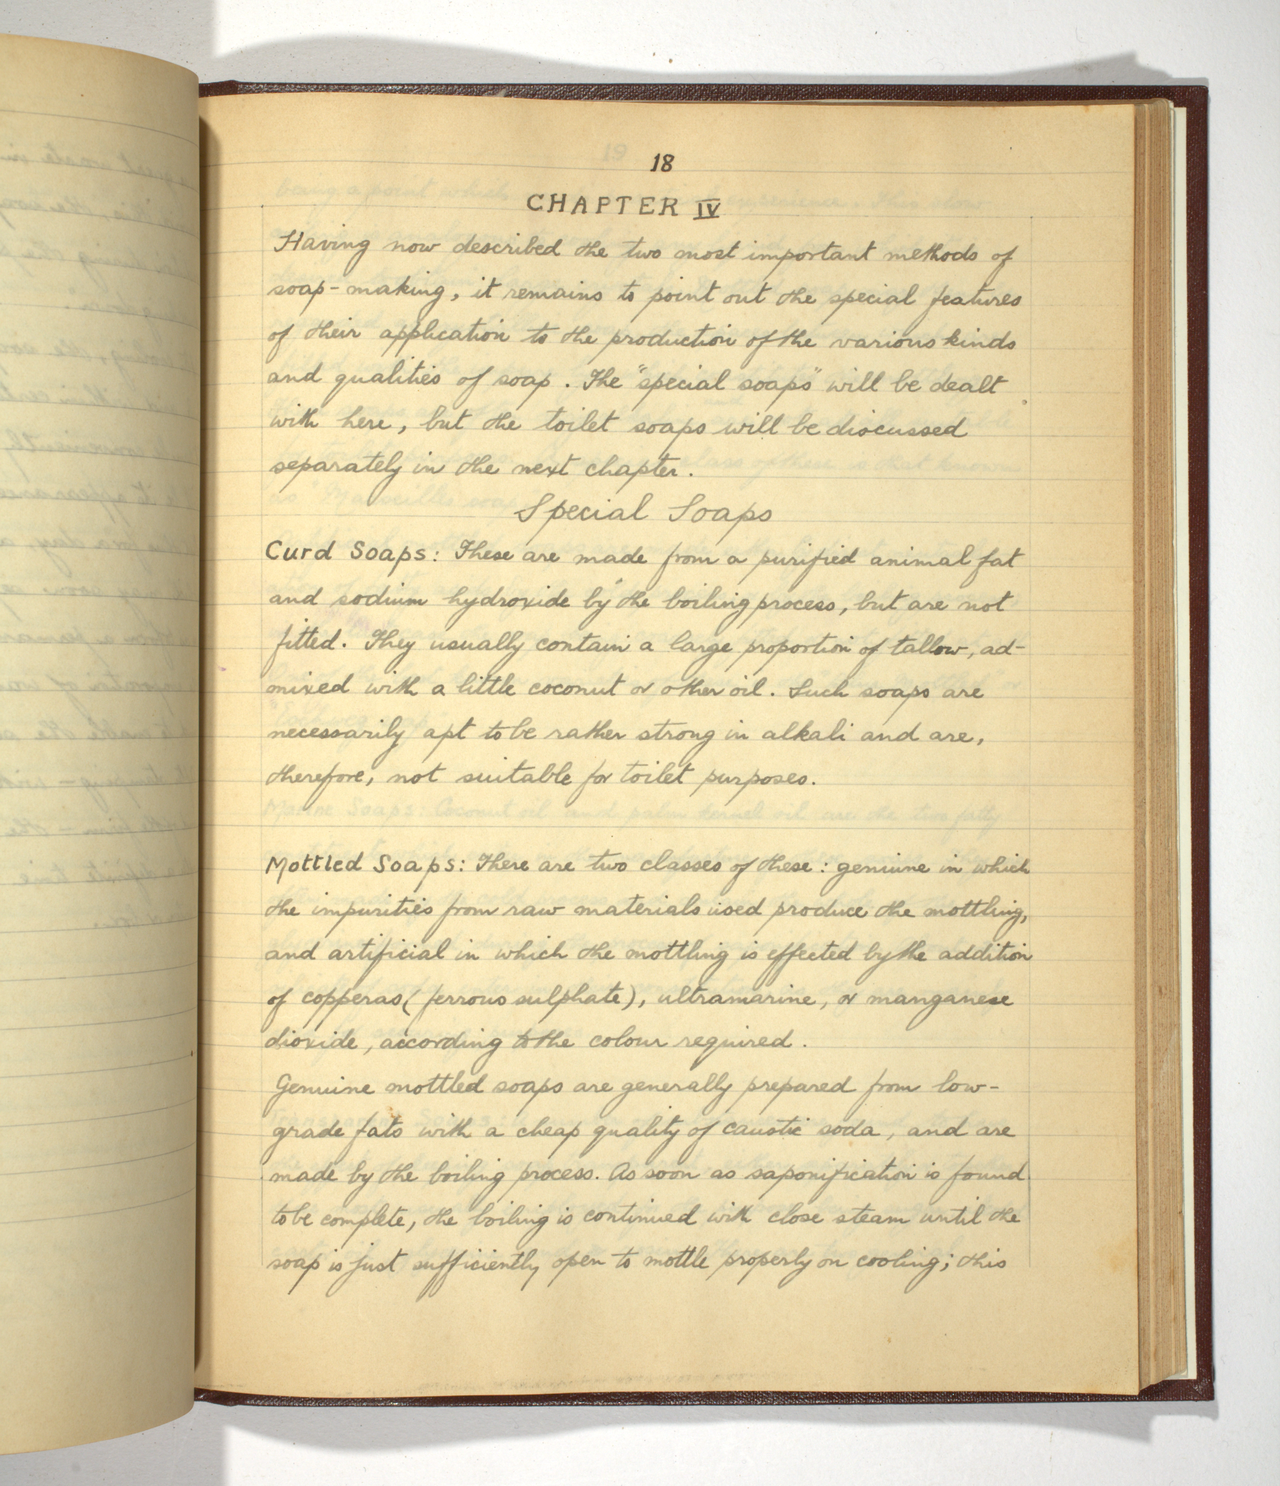 18
CHAPTER IV
Having now described the two most important methods of
soap-making, it remains to point out the special features
of their application to the production of the various kinds
and qualities of soap. The "special soaps" will be dealt
with here, but the toilet soaps will be discussed
separately in the next chapter.
Special Soaps
Curd Soaps: These are made from a purified animal fat
and sodium hydroxide by the boiling process, but are not
fitted. They usually contain a large proportion of tallow, ad-
mixed with a little coconut or other oil. Such soaps are
necessarily apt to be rather strong in alkali and are,
therefore, not suitable for toilet purposes.
Mottled Soaps: There are two classes of these: genuine in which
the impurities from raw materials used produce the mottling,
and artificial in which the mottling is effected by the addition
of copperas (ferrous sulphate), ultramarine, or manganese
dioxide, according to the colour required.
Genuine mottled soaps are generally prepared from low-
grade fats with a cheap quality of caustic soda, and are
made by the boiling process. As soon as saponification is found
to be complete, the boiling is continued with close steam until the
soap is just sufficiently open to mottle properly on cooling; this